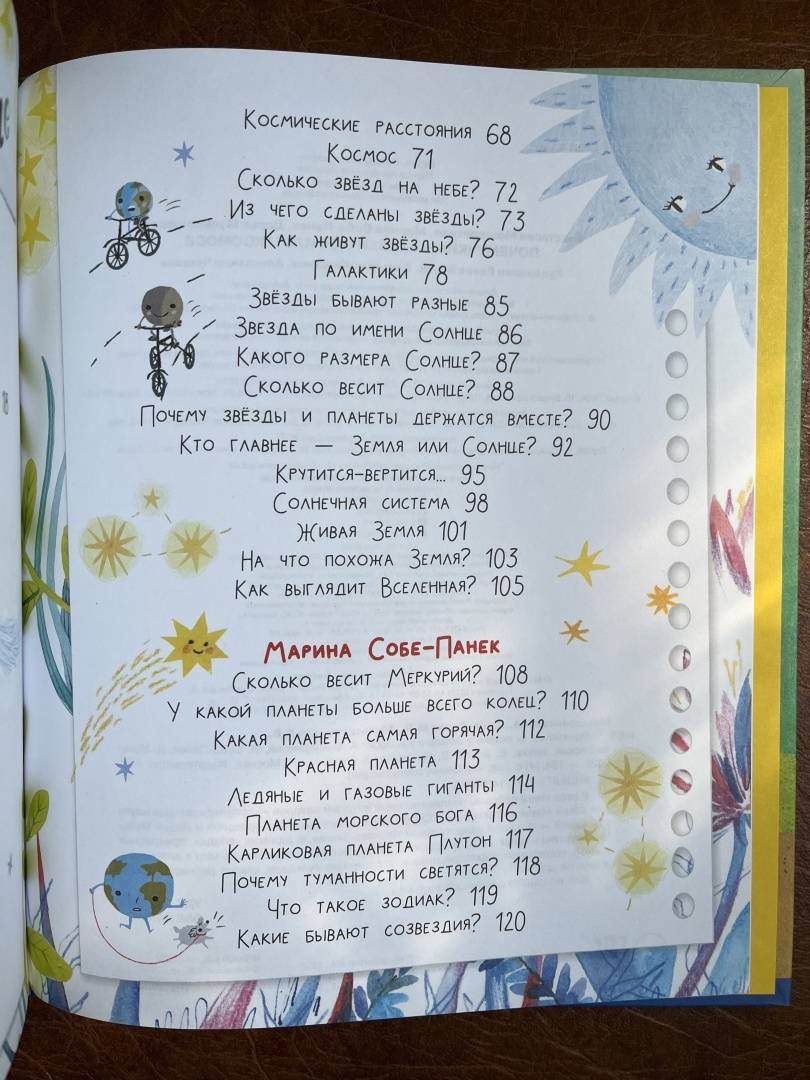 Космические расстояния 68
Космос 71
Сколько звёзд на небе? 72
Из чего сделаны звёзды? 73
Как живут звёзды? 76
Галактики 78
Звёзды бывают разные 85
Звезда по имени Солнце 86
Какого размера Солнце? 87
Сколько весит Солнце? 88
Почему звёзды и планеты держатся вместе? 90
Кто главнее — Земля или Солнце? 92
Крутится-вертится... 95
Солнечная система 98
Живая Земля 101
На что похожа Земля? 103
Как выглядит Вселенная? 105
Марина Собе-Панек
Сколько весит Меркурий? 108
У какой планеты больше всего колец? 110
Какая планета самая горячая? 112
Красная планета 113
Ледяные и газовые гиганты 114
Планета морского бога 116
Карликовая планета Плутон 117
Почему туманности светятся? 118
Что такое зодиак? 119
Какие бывают созвездия? 120